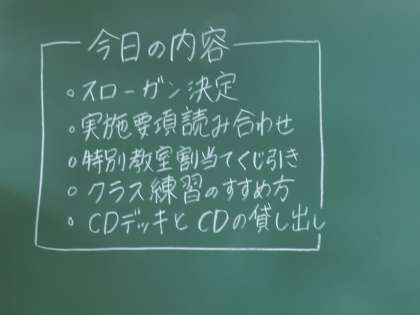 今日の内容
。スローガン決定
。実施要項読み合わせ
。特別教室割当てくじ引き
。クラス練習のすすめ方
。CDデッキとCDの貸し出し